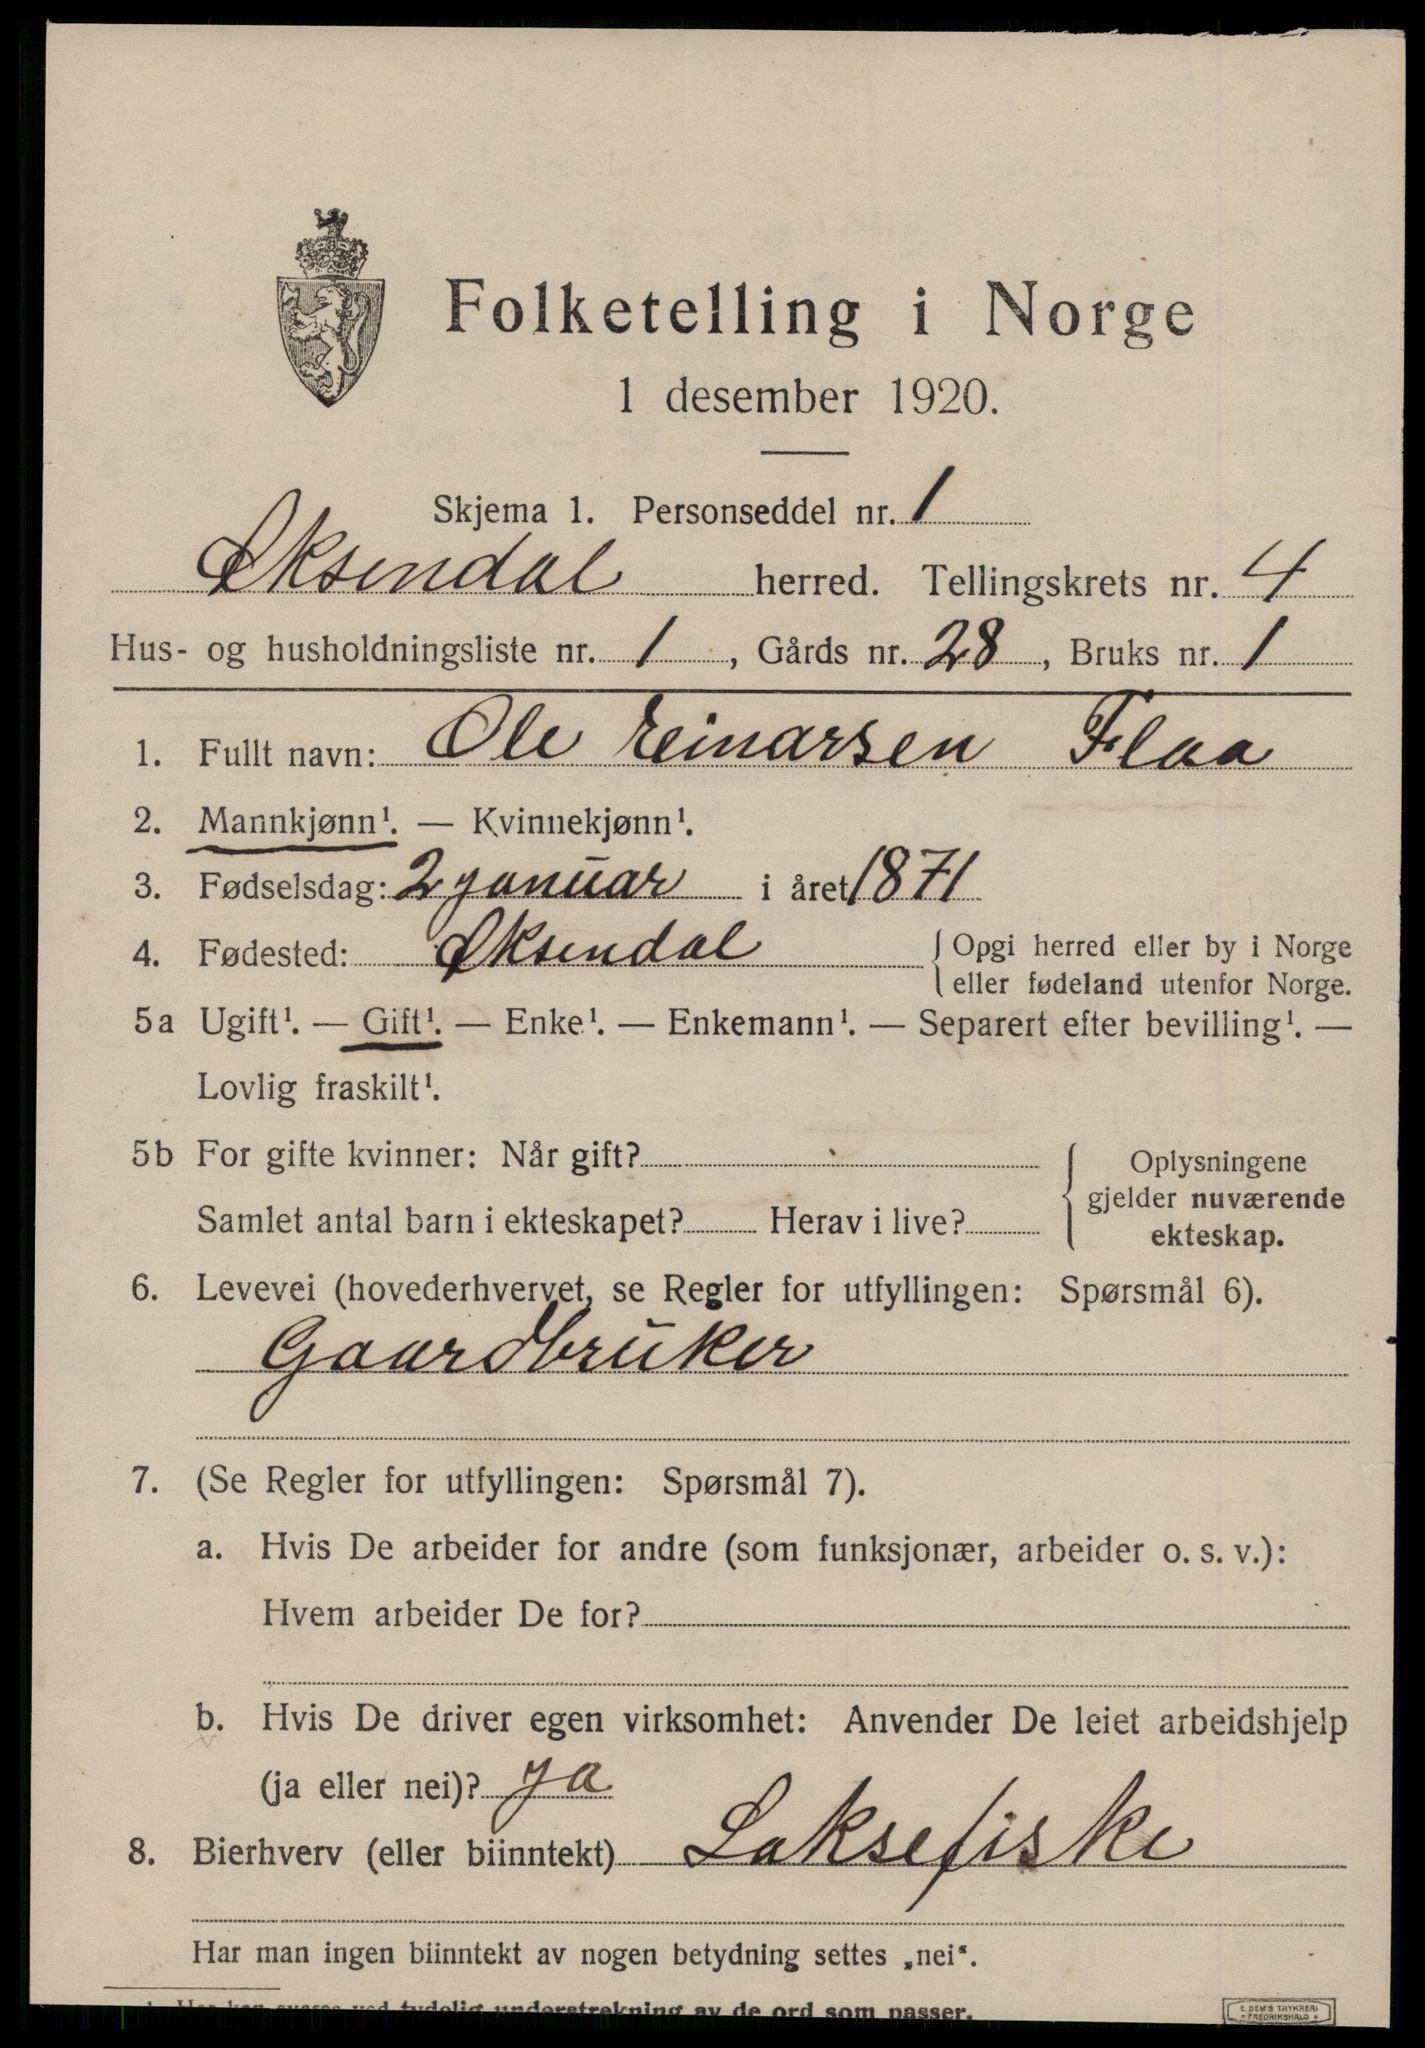 Folketelling i Norge
1 desember 1920.
Skjema 1. Personseddel nr. 1
Øksendal herred. Tellingskrets nr. 4
Hus- og husholdningsliste nr. 1, Gårds nr. 28, Bruks nr. 1
1. Fullt navn: Ole Einarsen Flaa
2. Mannkjønn¹. — Kvinnekjønn¹.
3. Fødselsdag: 2 januar i året 1871
4. Fødested: Øksendal { Opgi herred eller by i Norge
eller fødeland utenfor Norge.
5a Ugift¹. — Gift¹. — Enke¹. — Enkemann¹. — Separert efter bevilling¹. —
Lovlig fraskilt¹.
5b For gifte kvinner: Når gift?
Samlet antal barn i ekteskapet? Herav i live?
{ Oplysningene
gjelder nuværende
ekteskap.
6. Levevei (hovederhvervet, se Regler for utfyllingen: Spørsmål 6).
Gaardbruker
7. (Se Regler for utfyllingen: Spørsmål 7).
a. Hvis De arbeider for andre (som funksjonær, arbeider o. s. v.):
Hvem arbeider De for?
b. Hvis De driver egen virksomhet: Anvender De leiet arbeidshjelp
(ja eller nei)? ja
8. Bierhverv (eller biinntekt) Laksefiske
Har man ingen biinntekt av nogen betydning settes „nei“.
1 Her kan svares ved tydelig understrekning av de ord som passer.
E. SEM'S TRYKKERI
FREDRIKSHALD